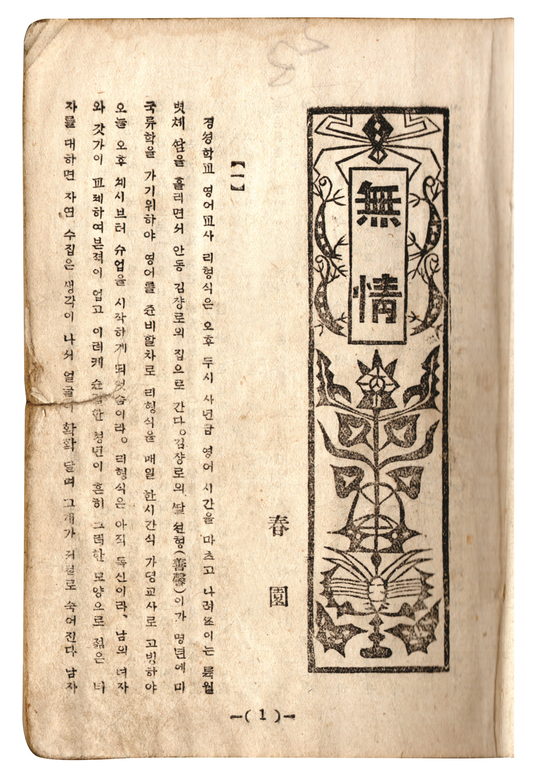 無情
春園
【一】
경성학교 영어교사 리형식은 오후 두시 사년급 영어 시간을 마츠고 나려쪼이는 륙월
볏체 쌈을 흘리면서 안동 김쟝로의 집으로 간다。김쟝로의 쌀 션형(善馨)이가 명년에 미
국류학을 가기위하야 영어를 쥰비할차로 리형식을 매일 한시간식 가뎡교사로 고빙하야
오늘 오후 세시브터 슈업을 시작하게 되엿슴이라。리형식은 아직 독신이라、남의 녀자
와 갓가이 교제하여본적이 업고 이러케 슌결한 청년이 흔히 그러한 모양으로 젊은 녀
자를 대하면 자연 수집은 생각이 나서 얼굴이 확확 달며 고개가 저절로 숙어진다 남자
—( 1 )—